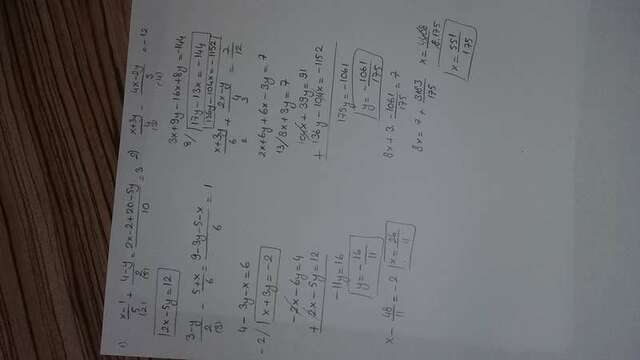 1) x-1/5 (2) + 4-y/2 (5) = 2x-2+20-5y/10 = 3
2x-5y=12
3-y/2 (3) - 5+x/6 = 9-3y-5-x/6 = 1
4-3y-x=6
-2/ x+3y=-2
-2x-6y=4
+ 2x-5y=12
-11y=16
y=-16/11
x-48/11=-2 x=26/11
2) x+3y/4 (3) - 4x-2y/3 (4) = -12
3x+9y-16x+8y=-144
8/ 17y-13x=-144
136y-104x=-1152
x+3y/6 2 + 2x-y/4 3 = 7/12
2x+6y+6x-3y=7
13/8x+3y=7
104x+39y=91
+ 136y-104x=-1152
175y=-1061
y=-1061/175
8x+3.-1061/175=7
8x=7+3183/175 x=4408/8.175
x=551/175